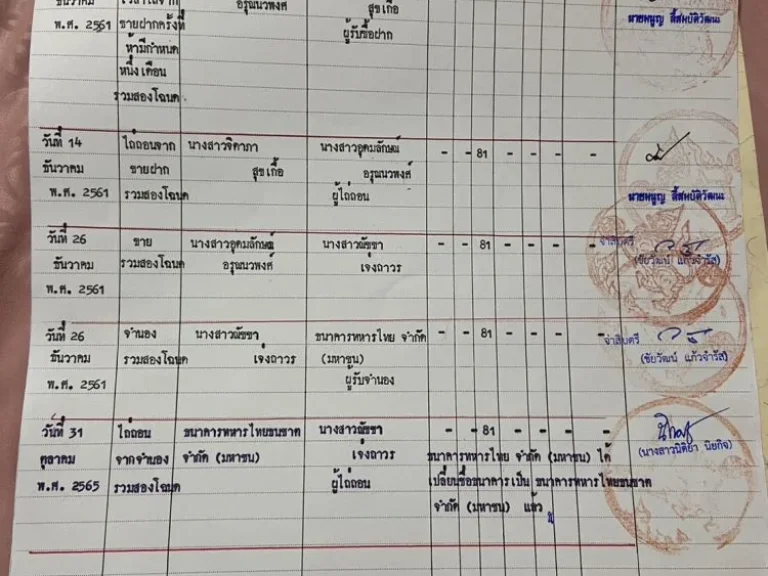 ธันวาคม
พ.ศ. 2561
ขายฝากครั้งที่
ห้ามีกำหนด
หนึ่งเดือน
รวมสองโฉนด
อรุณนวพงศ์
สุขเกื้อ
ผู้รับซื้อฝาก
วันที่ 14 ไถ่ถอนจาก นางสาวจิดาภา นางสาวอุดมลักษณ์ - - 81 - - - -
ธันวาคม ขายฝาก สุขเกื้อ อรุณนวพงศ์
พ.ศ. 2561 รวมสองโฉนด ผู้ไถ่ถอน
วันที่ 26 ขาย นางสาวอุดมลักษณ์ นางสาวณัชชา - - 81 - - - - จ่าสิบตรี
ธันวาคม รวมสองโฉนด อรุณนวพงศ์ เจ่งถาวร (ชัยวัฒน์ แก้วจำรัส)
พ.ศ. 2561
วันที่ 26 จำนอง นางสาวณัชชา ธนาคารทหารไทย จำกัด - - 81 - - - - จ่าสิบตรี
ธันวาคม รวมสองโฉนด เจ่งถาวร (มหาชน) (ชัยวัฒน์ แก้วจำรัส)
พ.ศ. 2561 ผู้รับจำนอง
วันที่ 31 ไถ่ถอน ธนาคารทหารไทยธนชาต นางสาวณัชชา - - 81 - - - -
ตุลาคม จากจำนอง จำกัด (มหาชน) เจ่งถาวร ธนาคารทหารไทย จำกัด (มหาชน) ได้ (นางสาวนิติยา นิยกิจ)
พ.ศ. 2565 รวมสองโฉนด ผู้ไถ่ถอน เปลี่ยนชื่อธนาคารเป็น ธนาคารทหารไทยธนชาต
จำกัด (มหาชน) แล้ว